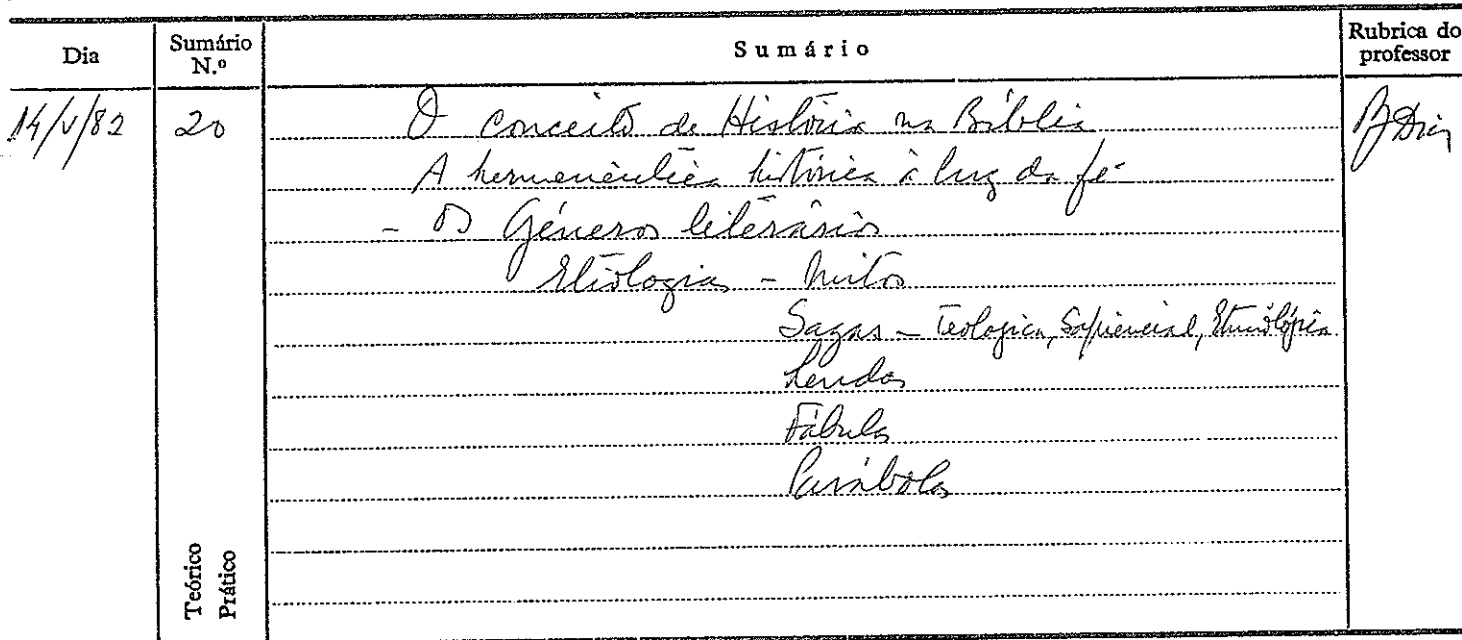 Dia
Sumário N.º
Sumário
Rubrica do professor
14/V/82
20
O conceito de História na Bíblia
A hermenêutica histórica à luz da fé
- Os Géneros literários
Etiologias - Mitos
Sagas - Teológica, Sapiencial, Etnológica
Lendas
Fábulas
Parábolas
Teórico
Prático